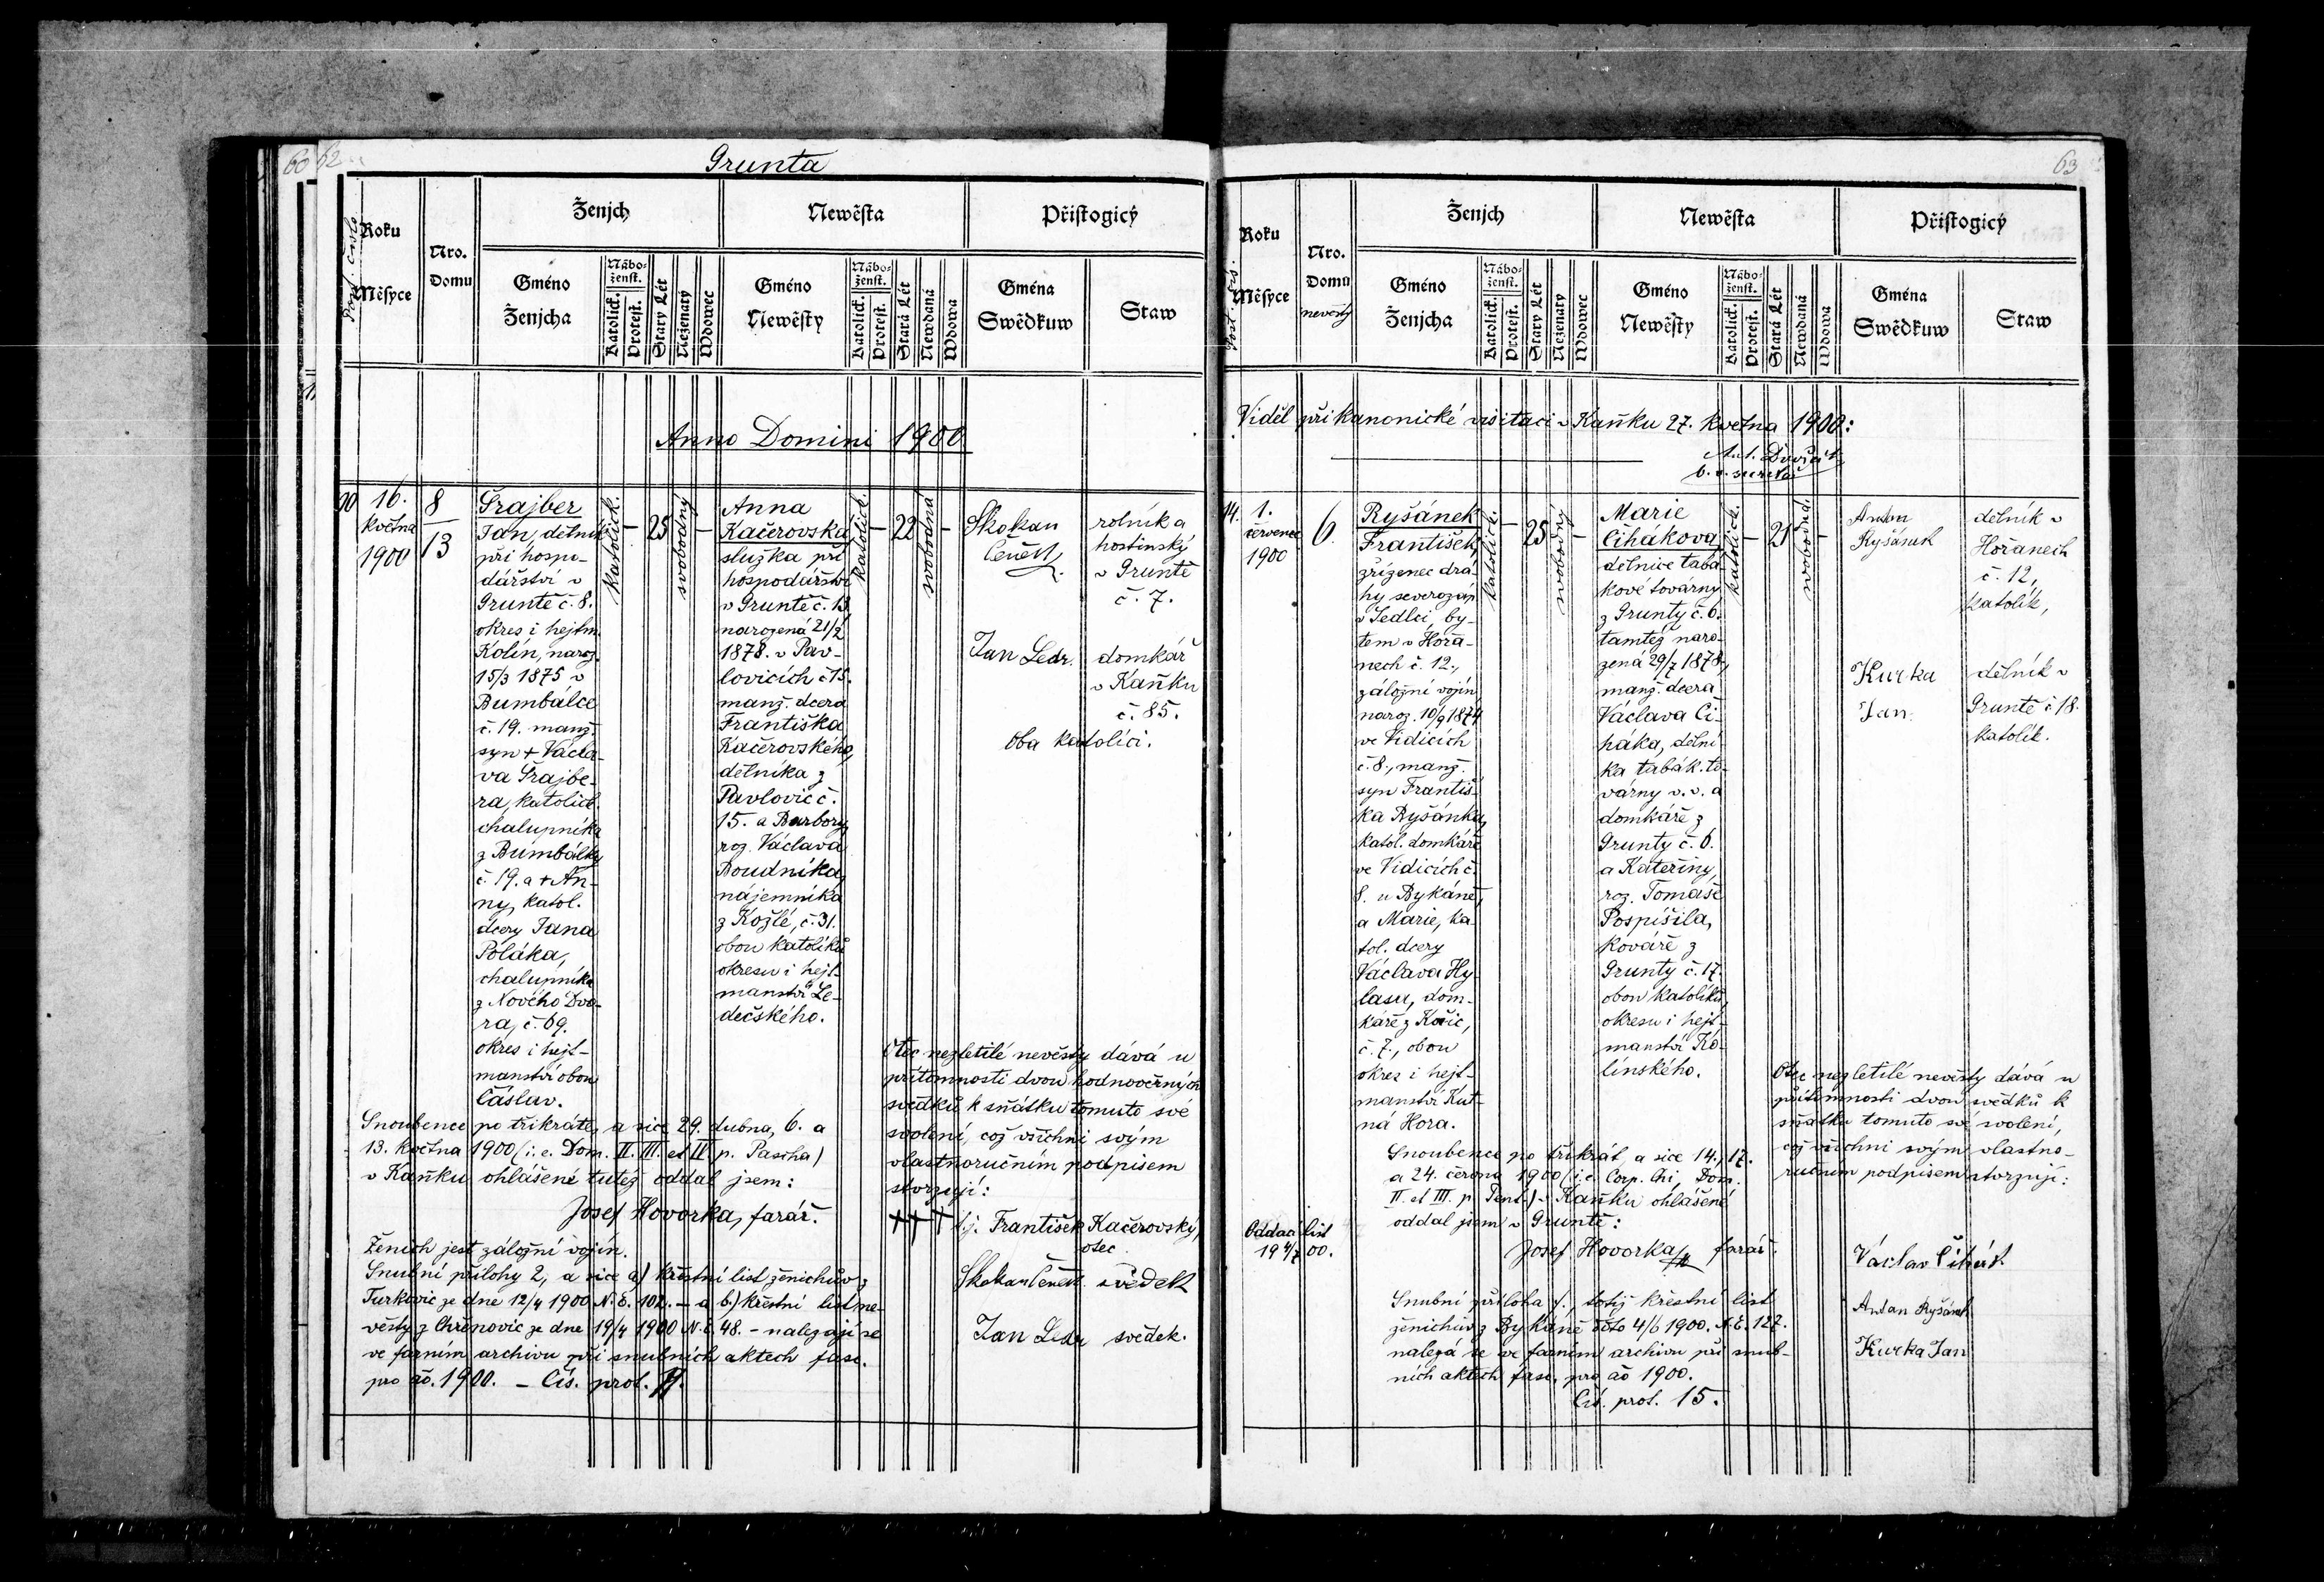 60 62
Grunta
Roku
Měsyce
Nro.
Domu
Ženjch
Newěsta
Přistogicý
Gméno
Ženjcha
Nábo-
ženst.
Katolick.
Protest.
Starý Lét
Neženatý
Wdowec
Gméno
Newěsty
Nábo-
ženst.
Katolick.
Protest.
Stará Lét
Newdaná
Wdowa
Gména
Swědkuw
Staw
Anno Domini 1900
16.
května
1900
8
13
Šrajber
Jan, dělník
při hospo-
dářství v
Gruntě č. 8.
okres i hejtm.
Kolín, naroz.
15/3 1875 v
Bumbálce
č. 19. manž.
syn + Václa-
va Šrajbe-
ra, katolick.
chalupníka
z Bumbálky
č. 19. a + An-
ny, katol.
dcery Jana
Poláka,
chalupníka
z Nového Dvo-
ra, č. 69.
okres i hejt-
manství obou
Čáslav.
katolick.
–
25
svobodný
–
Anna
Kačerovská,
služka při
hospodářství
v Gruntě č. 13,
narozená 21/2
1878. v Pav-
lovicích č 15.
manž. dcera
Františka
Kačerovského,
dělníka z
Pavlovic č.
15. a Barbory,
roz. Václava
Boudníka,
nájemníka
z Kozlé, č. 31.
obou katolíků
okresu i hejt-
manství Le-
dečského.
katolick.
–
22
svobodná
–
Skokan
Čeněk
rolník a
hostinský
v Gruntě
č. 7.
Jan Ledr.
domkář
v Kaňku
č. 85.
Oba katolíci.
Snoubence po třikráte, a sice 29. dubna, 6. a
13. května 1900 (i. e. Dom. II. III. et IV. p. Pascha)
v Kaňku ohlášené tutéž oddal jsem:
Josef Hovorka, farář.
Ženich jest záložní vojín.
Snubní přílohy 2, a sice a) křestní list ženichův z
Turkovic ze dne 12/4 1900 N. E. 102. – a b.) křestní list ne-
věsty z Chřenovic ze dne 19/4 1900 N. E. 48. – nalezají se
ve farním archivu při snubních aktech fasc.
pro ao. 1900. – Čís. prot.
Otec nezletilé nevěsty dává u
přítomnosti dvou hodnověrných
svědků k sňátku tomuto své
svolení, což všichni svým
vlastnoručním podpisem
stvrzují:
+++ František Kačerovský,
otec
Skokan Čeněk svědek
Jan Ledr svědek.
63
Roku
Měsyce
Nro.
Domu
nevěsty
Ženjch
Newěsta
Přistogicý
Gméno
Ženjcha
Nábo-
ženst.
Katolick.
Protest.
Starý Lét
Neženatý
Wdowec
Gméno
Newěsty
Nábo-
ženst.
Katolick.
Protest.
Stará Lét
Newdaná
Wdowa
Gména
Swědkuw
Staw
Viděl při kanonické visitaci v Kaňku 27. května 1900:
Ant.
14.
1.
července
1900
6.
Ryšánek
František,
zřízenec drá-
hy severozáp
v Sedlci, by-
tem v Hořa-
nech č. 12.,
záložní vojín
naroz. 10/9 1874
ve Vidicích
č. 8., manž.
syn Františ-
ka Ryšánka,
katol. domkáře
ve Vidicích č.
8. u Bykáně,
a Marie, ka-
tol. dcery
Václava Hy-
lasu, dom-
káře z
č. 7., obou
okres i hejt-
manství Kut-
ná Hora.
katolick.
–
25
svobodný
–
Marie
Čiháková
dělnice taba-
kové továrny
z Grunty č. 6.
tamtéž naro-
zená 29/7 1878,
manž. dcera
Václava Či-
háka, dělní-
ka tabák. to-
várny v. v. a
domkáře z
Grunty č. 6.
a Kateřiny,
roz. Tomáše
Pospíšila,
kováře z
Grunty č. 17.
obou katolíků,
okresu i hejt-
manství Ko-
línského.
katolick.
–
21
svobodná
–
Antan
Ryšánek
dělník v
Hořanech
č. 12,
katolík,
Kurka
Jan.
dělník v
Gruntě č 18.
katolík.
Snoubence po třikrát, a sice 14., 17.
a 24. června 1900 (i. e. Corp. Chi, Dom.
II. et III. p. Pent.) v Kaňku ohlášené
oddal jsem v Gruntě:
Josef Hovorka farář.
Oddací list
19 00.
Snubní příloha 1., totiž křestní list
ženichův z Bykáně ddto 4/6 1900. N. E. 127.
nalezá se ve farním archivu při snub-
ních aktech fasc. pro ao 1900.
Čís. prot. 15.
Otec nezletilé nevěsty dává u
přítomnosti dvou svědků k
sňatku tomuto své svolení,
což všichni svým vlastno-
ručním podpisem stvrzují:
Václav Čihák
Antan Ryšánek
Kurka Jan